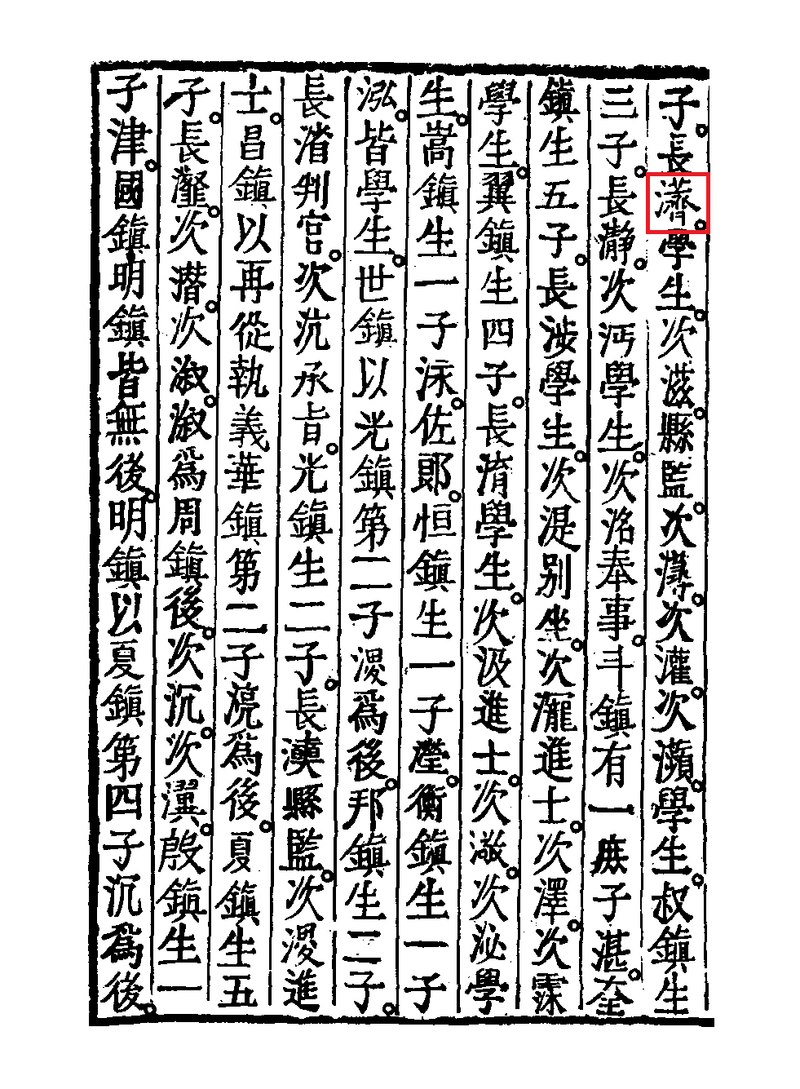 子長濟學生次滋縣監次潯次灌次瀕學生叔鎭生
三子長瀞次沔學生次洺奉事斗鎭有一庶子湛奎
鎭生五子長涉學生次湜別坐次瀧進士次澤次霂
學生翼鎭生四子長淯學生次汲進士次澂次泌學
生嵩鎭生一子沬佐郞恒鎭生一子瀅衡鎭生一子
泓皆學生世鎭以光鎭第二子溭爲後邦鎭生二子
長渻判官次沆承旨光鎭生二子長㵛縣監次溭進
士昌鎭以再從執義華鎭第二子滰爲後夏鎭生五
子長灐次濳次淑淑爲周鎭後次沉次瀷殷鎭生一
子津國鎭明鎭皆無後明鎭以夏鎭第四子沉爲後